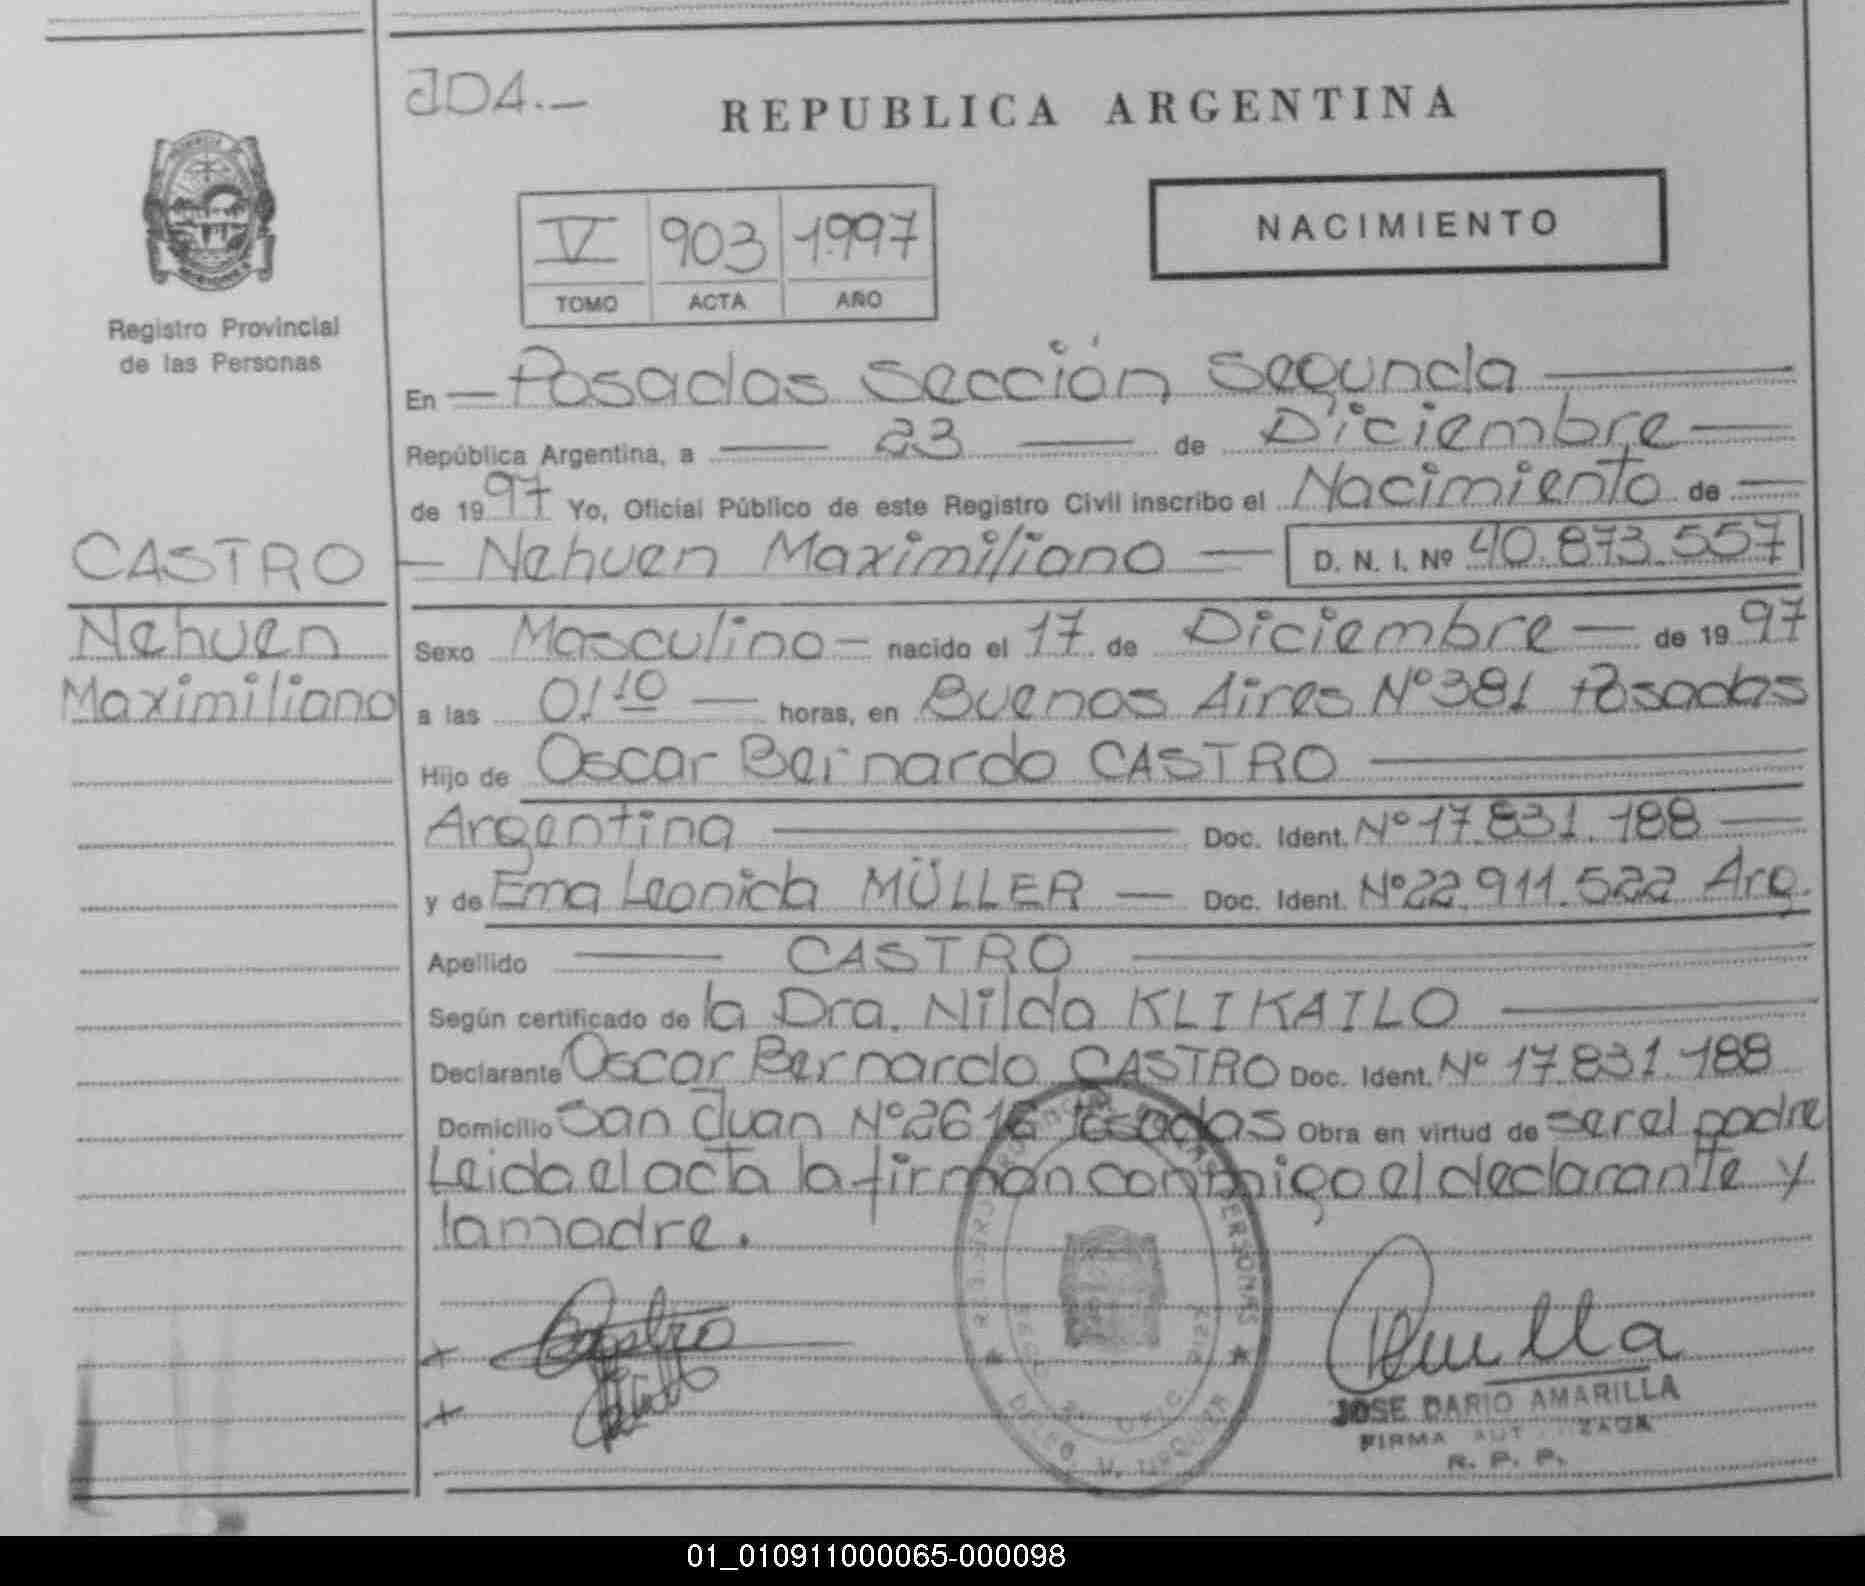 JDA.-
REPUBLICA ARGENTINA
V 903 1997
TOMO ACTA AÑO
NACIMIENTO
Registro Provincial
de las Personas
CASTRO
Nehuen
Maximiliano
En Posadas Sección Segunda
República Argentina, a 23 de Diciembre
de 1997 Yo, Oficial Público de este Registro Civil inscribo el Nacimiento de
Nehuen Maximiliano D. N. I. Nº 40.873.557
Sexo Masculino nacido el 17 de Diciembre de 1997
a las 01:10 horas, en Buenos Aires Nº 381 Posadas
Hijo de Oscar Bernardo CASTRO
Argentina Doc. Ident. Nº 17.831.188
y de Ema Leonida MÜLLER Doc. Ident. Nº 22.911.522 Arg.
Apellido CASTRO
Según certificado de la Dra. Nilda KLIKAILO
Declarante Oscar Bernardo CASTRO Doc. Ident. Nº 17.831.188
Domicilio San Juan Nº 2616 Posadas Obra en virtud de ser el padre
Leida el acta la firman conmigo el declarante y
la madre.
Castro
JOSE DARIO AMARILLA
FIRMA AUTORIZADA
R. P. P.
01_010911000065-000098